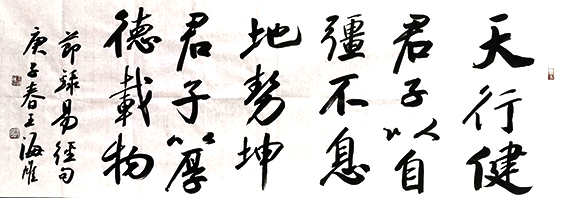 天行健
君子以自
彊不息
地勢坤
君子以厚
德載物
節録易經句
庚子春王海